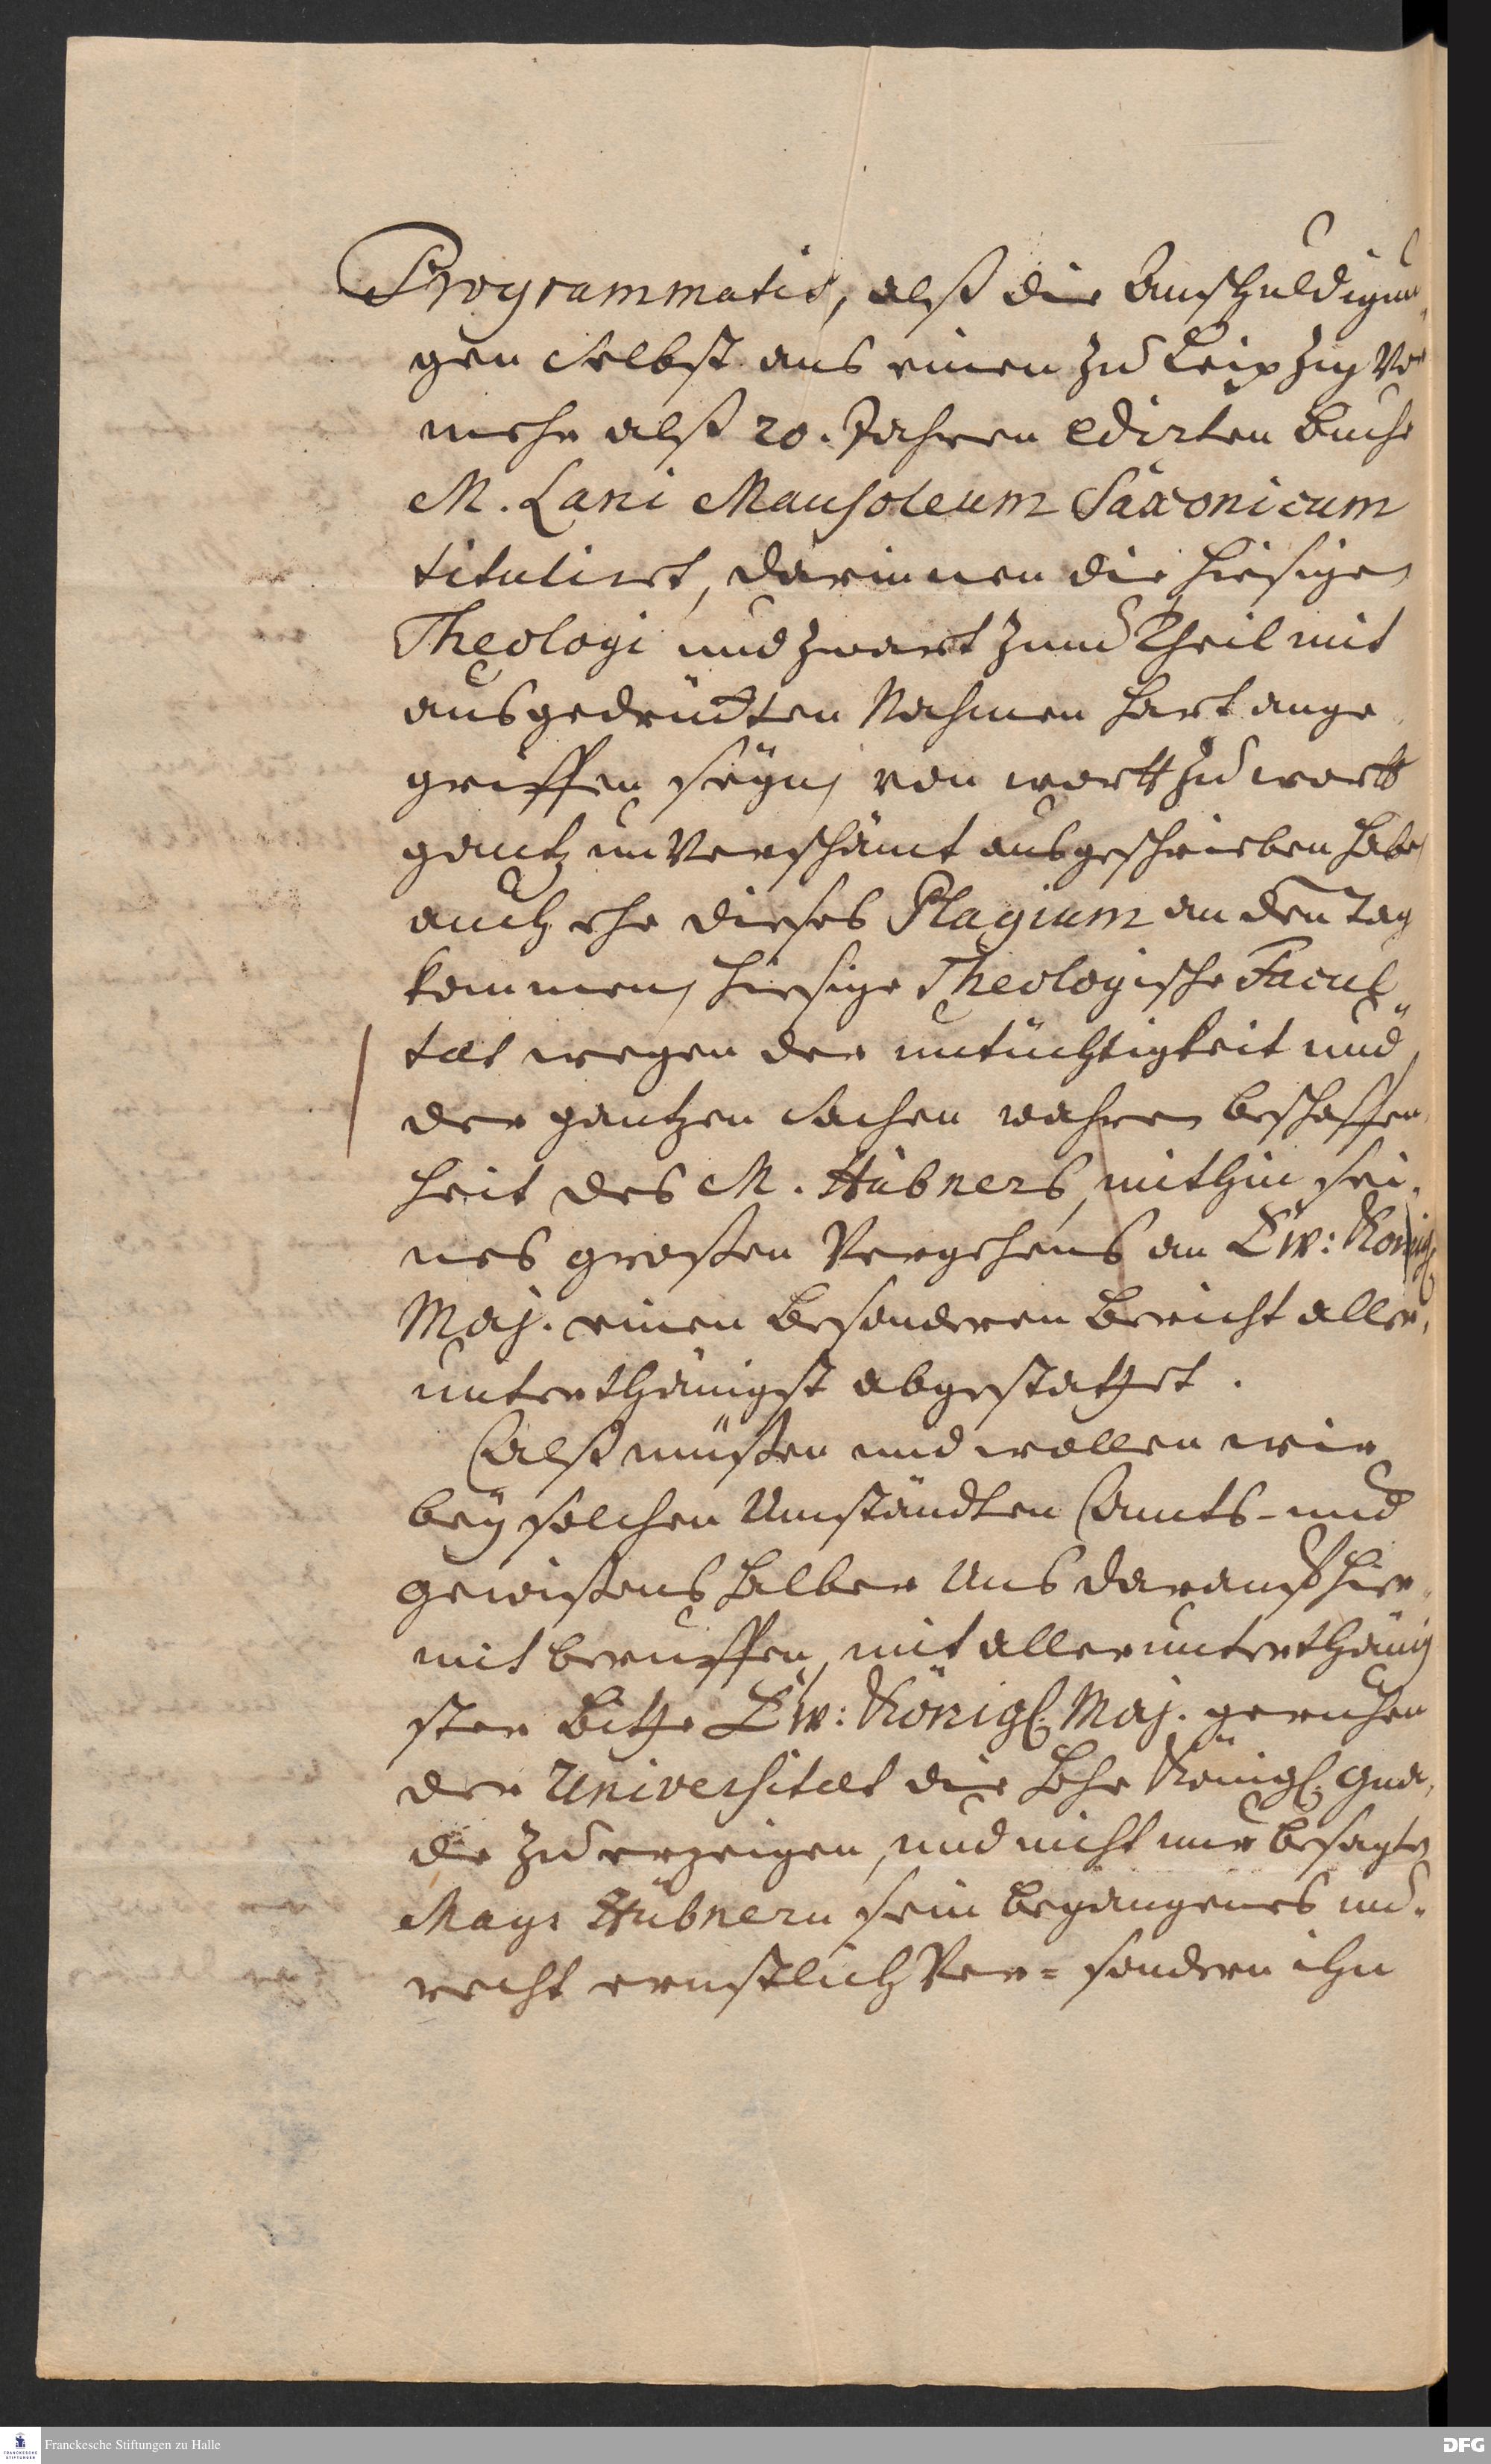 Programmatis, alß die Anschuldigun„
gen selbst aus einen zu Leipzig vor
mehr alß 20. Jahren edirten Buche
M. Lani Mausoleum Saxonicum
titulirt, darinnen die hiesigen
Theologi und zwart zum Theil mit
ausgedrückten Nahmen hart ange„
griffen seyn, von wortt zu wortt
gantz unverschämt ausgeschrieben habe,
auch ehe dieses Plagium an den Tag
kommen, hiesige Theologische Facul„
tæt wegen der untüchtigkeit und
der gantzen Sachen wahren beschaffen„
heit des M. Hübners, mithin sei„
nes großen Vergehens an Ew: Königl.
Maj. einen besonderen Bericht aller„
unterthänigst abgestattet.
Alß müßen und wollen wir
bey solchen Umständten Ambts- und
gewißens halber Uns darauff hier„
mit beruffen, mit allerunterthänig
ster Bitte Ew: Königl. Maj. geruhen
der Universitæt die hohe Königl. Gna„
de zu erzeigen, und nicht nur besagten
Mag. Hübnern sein begangenes un„
recht ernstlich Ver= sondern ihn
Franckesche Stiftungen zu Halle
DFG